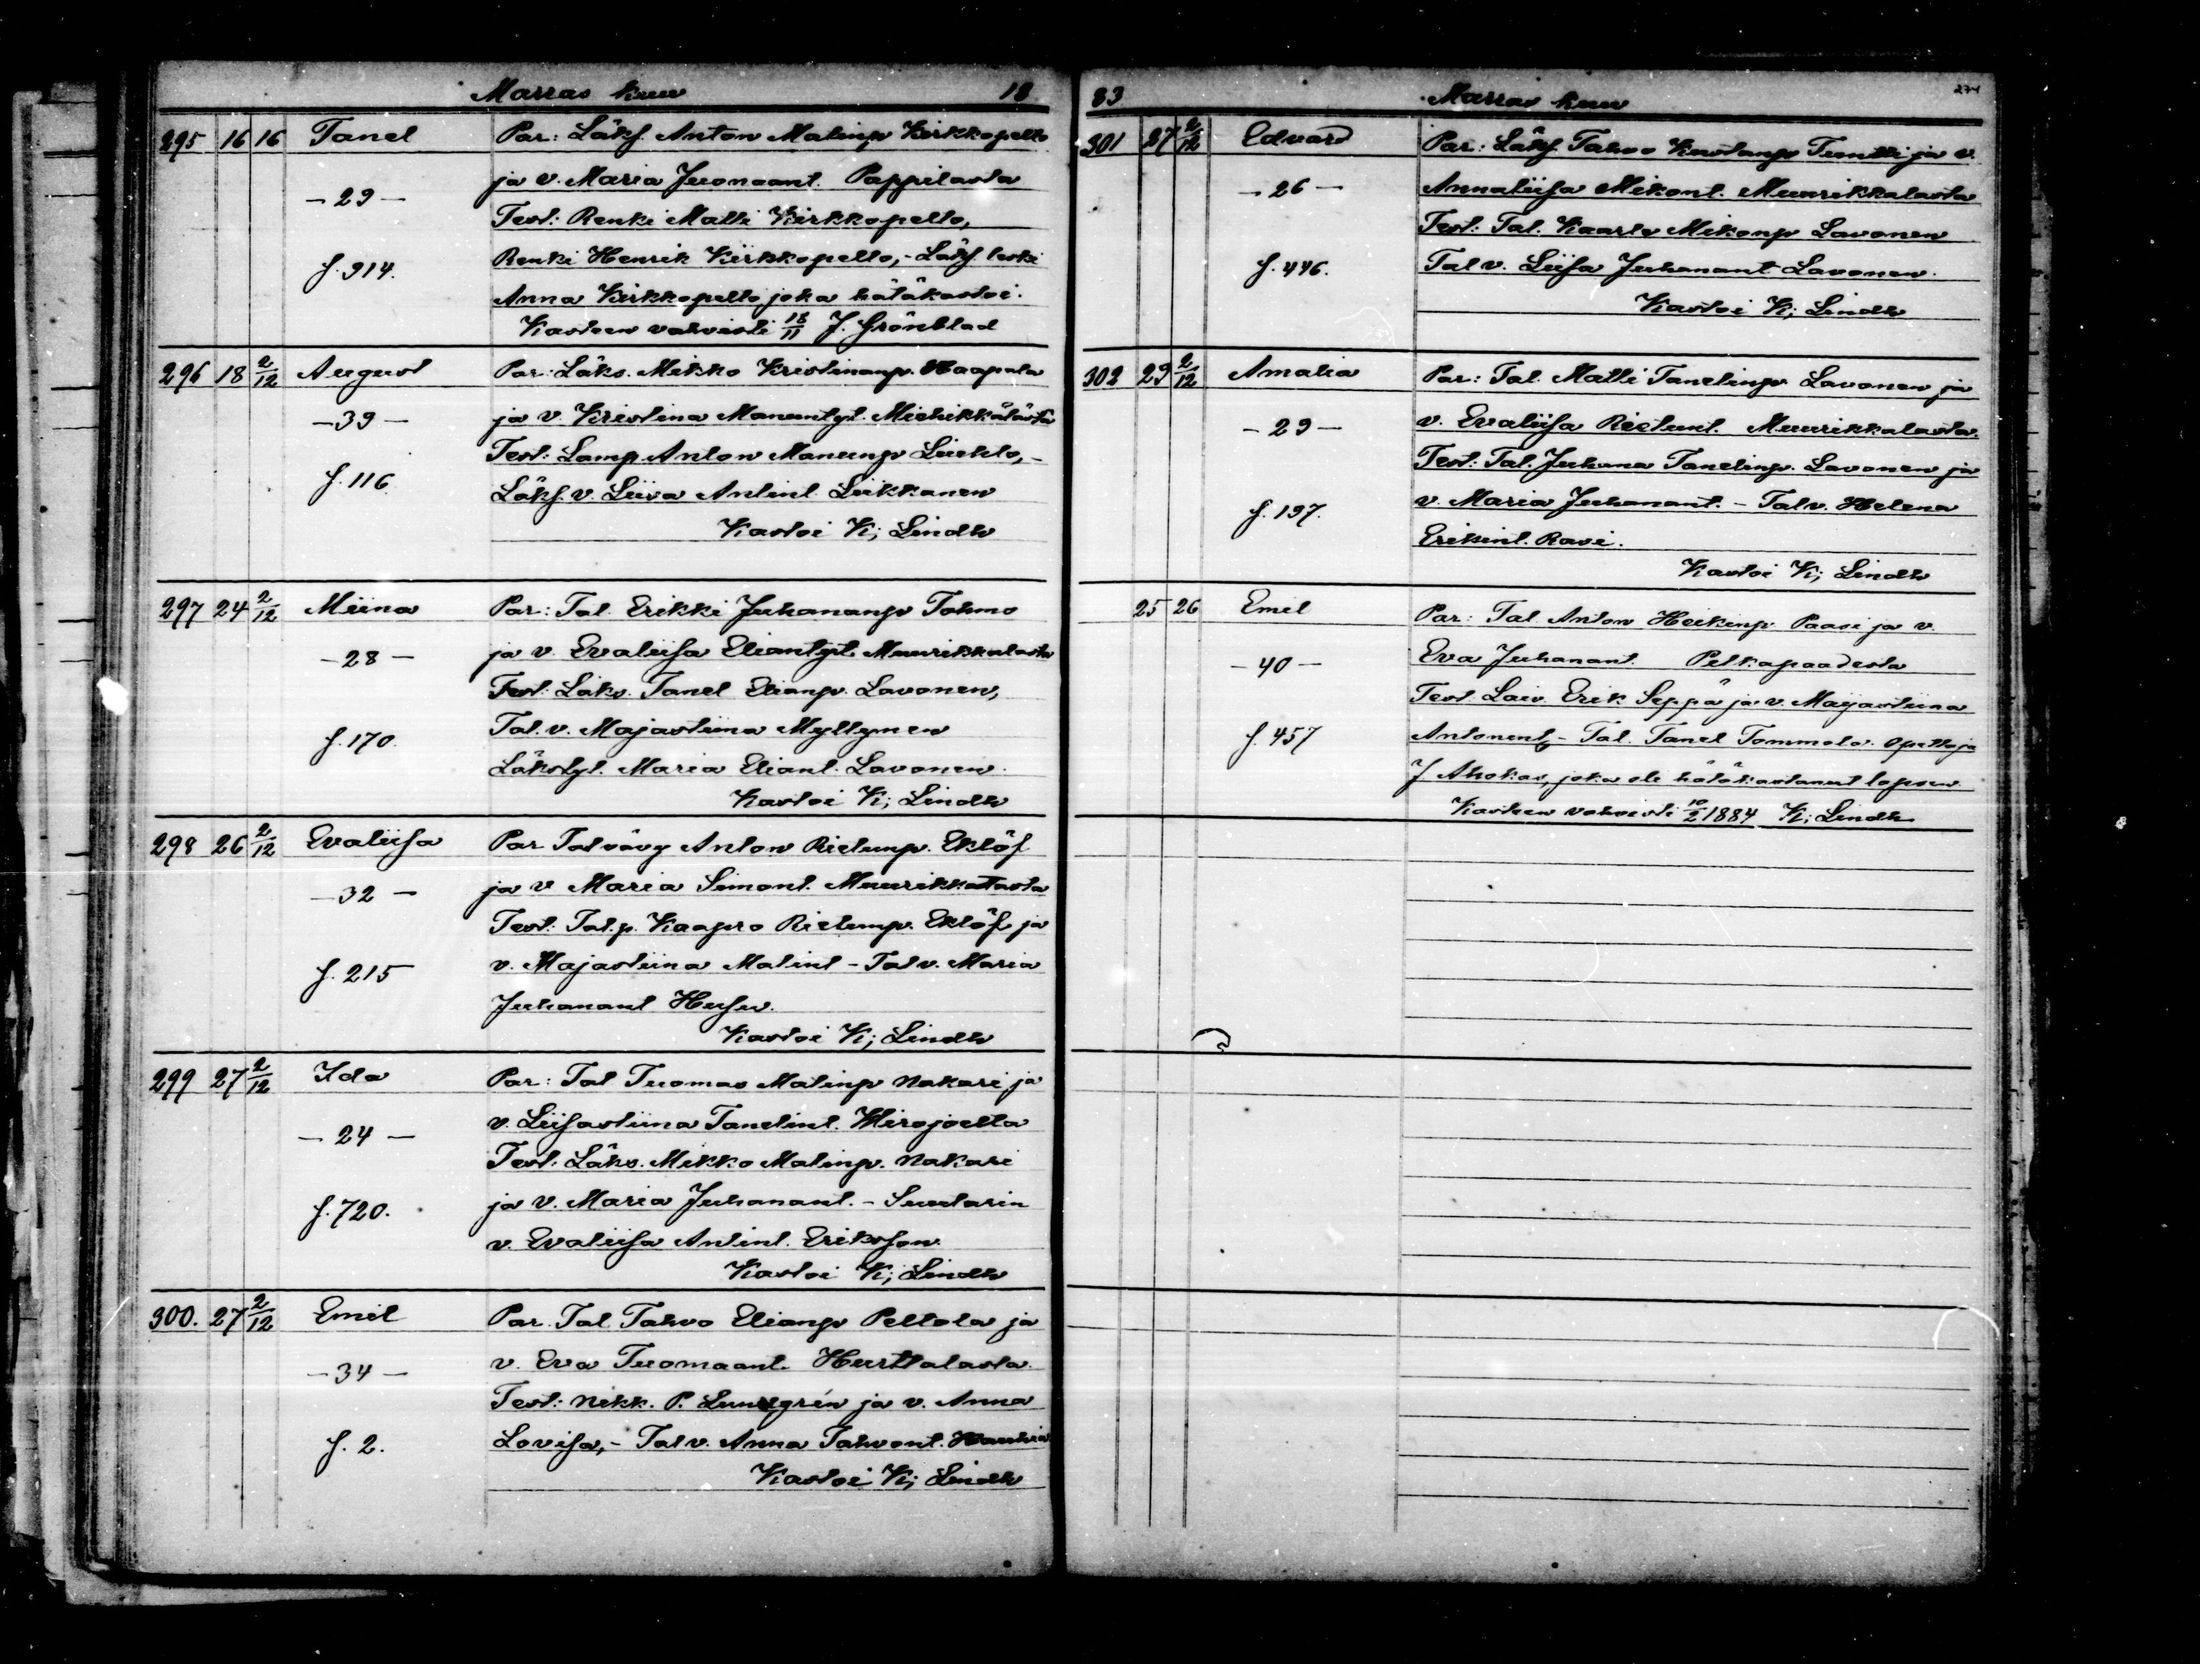 Marras kuu 18
295 16 16 Tanel Par: Läks. Anton Matinp. Kirkkopelto
ja v. Maria Juonaant. Pappilasta
- 29 - Test: Renki Matti Kirkkopelto,
f. 914. Renki Henrik Kirkkopelto, - Läks. leski
Anna Kirkkopelto joka hätäkastoi.
Kasteen vahvisti 18/11 J. Grönblad
296 18 2/12 August Par: Läks. Mikko Kristianinp. Haapala
- 39 - ja v. Kristina Manuntyt. Miehikkälästä
Test: Lamp. Anton Manunp. Liuhto, -
f. 116 Läks. v. Liisa Antint. Liikkanen
Kastoi K; Lindh
297 24 2/12 Miina Par: Tal. Erikki Juhananp. Tohmo
- 28 - ja v. Evaliisa Eliantyt. Muurikkalasta
Test: Läks. Tanel Elianp. Lavonen,
f. 170. Tal. v. Majastiina Myllynen
Läkstyt. Maria Eliant. Lavonen.
Kastoi K; Lindh
298 26 2/12 Evaliisa Par Tal vävy Anton Rietunp. Eklöf
- 32 - ja v Maria Simont. Muurikkalasta
Test: Tal.p. Kaapro Rietunp. Eklöf ja
f. 215 v. Majastiina Matint - Tal v. Maria
Juhanant Husu.
Kastoi K; Lindh
299 27 2/12 Ida Par: Tal Tuomas Matinp Nakari ja
- 24 - v. Liisastiina Tanelint. Wirojoelta
Test: Läks. Mikko Matinp. Nakari
f. 720. ja v. Maria Juhanant. - Suutarin
v. Evaliisa Antint. Eriksson.
Kastoi K; Lindh
300. 27 2/12 Emil Par. Tal Tahvo Elianp Peltola ja
- 34 - v. Eva Tuomaant. Hurttalasta.
Test: Nikk. P. Lundgrén ja v. Anna
f. 2. Lovisa, - Tal v. Anna Tahvont. Hauhia
Kastoi K; Lindh
83 Marras kuu 274
301 27 2/12 Edvard Par: Läks. Tahvo Kustanp Tuntti ja v.
- 26 - Annaliisa Mikont. Muurikkalasta
Test: Tal. Kaarlo Mikonp Lavonen
f. 446. Tal v. Liisa Juhanant Lavonen.
Kastoi K; Lindh
302 29 2/12 Amalia Par: Tal. Matti Tanelinp Lavonen ja
- 29 - v. Evaliisa Rietunt. Muurikkalasta.
Test: Tal. Juhana Tanelinp. Lavonen ja
f. 197. v. Maria Juhanant. - Tal v. Helena
Erikint. Rasi.
Kastoi K; Lindh
25 26 Emil Par: Tal Anton Heikinp Paasi ja v.
- 40 - Eva Juhanant. Pelkapaadesta
Test. Laiv. Erik Seppä ja v. Majastiina
f. 457 Antonent, - Tal. Tanel Tommola. opettaja
J Ahokas, joka oli hätäkastanut lapsen.
Kasteen vahvisti 10/2 1884 K; Lindh